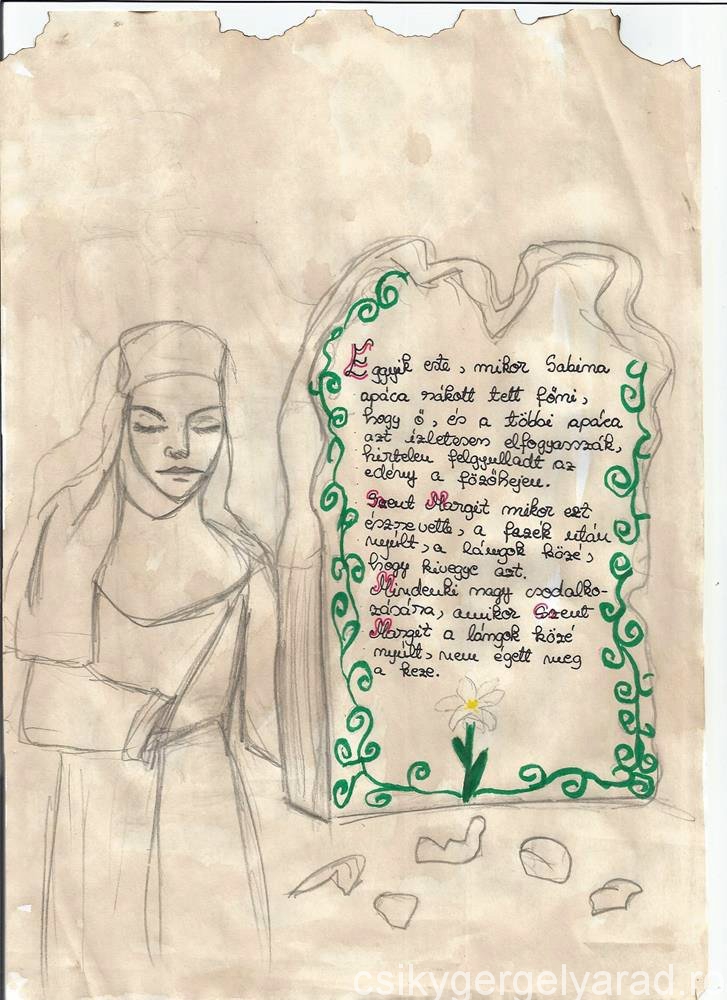 Eggyik este, mikor Sabina
apáca rákott tett főni,
hogy ő, és a többi apáca
azt izletesen elfogyasszák,
hirtelen felgyulladt az
edény a főzőhejen.
Szent Margit mikor ezt
észrevette, a fazék után
nyúlt, a lángok közé,
hogy kivegye azt.
Mindenki nagy csodalko-
zására, amikor Szent
Margit a lángok közé
nyúlt, nem égett meg
a keze.
csikygergelyarad.r